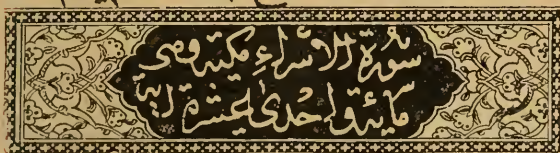 سُورَةُ الْاَسْرَاءِ مَكِّيَّة وَهِيَ
مِائَةٌ وَاِحْدٰى عَشْرَةَ اٰيَة